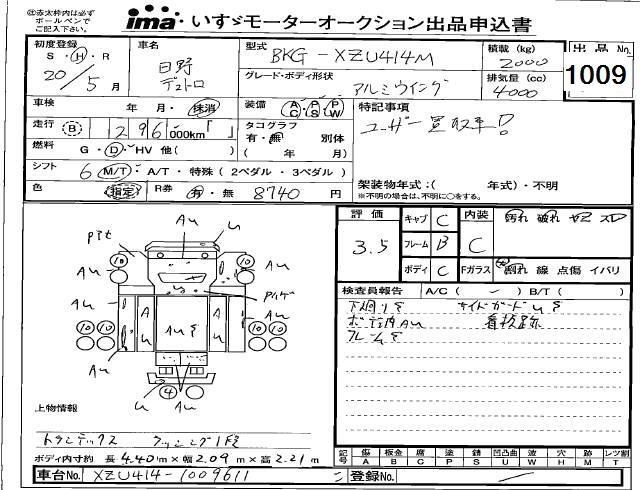 ※赤太枠内は必ず
ボールペンで
ご記入下さい。
ima いすゞモーターオークション出品申込書
初度登録
S・H・R
20/5月
車名
日野
デュトロ
型式
BKG-XZU414M
積載(kg)
2000
出品No
1009
グレード・ボディ形状
アルミウイング
排気量(cc)
4000
車検
年 月・抹消
装備 AC PS PW
特記事項
ユーザー買取車!
走行 B 1296 000km「 」
タコグラフ
有・無 別体
( 年 月)
燃料 G・D・HV 他( )
シフト 6 M/T・A/T・特殊(2ペダル・3ペダル)
色 指定
R券 有・無 8740 円
架装物年式:( 年式)・不明
※不明の場合は、不明に○をする。
評価 3.5
キャブ C
フレーム B
ボディ C
内装 C
汚れ 破れ
Fガラス
割れ 線 点傷 イバリ
検査員報告 A/C( ) B/T( )
下廻りS サイドガードUS
看板跡
フレームS
Au
U
Pit
10
10
Au
Au
Au
AuS
10 10
10 10
Au
Au
4
U
Au
上物情報
トランテックス ラッシング1段
ボディ内寸約 長4.40m×幅2.09m×高2.21m
記号
傷 A
板金 B
腐 C
塗 P
錆 S
凹凸曲 U
波 W
穴 H
跡 M
レツ割 T
車台No. XZU414-1009611
登録No.